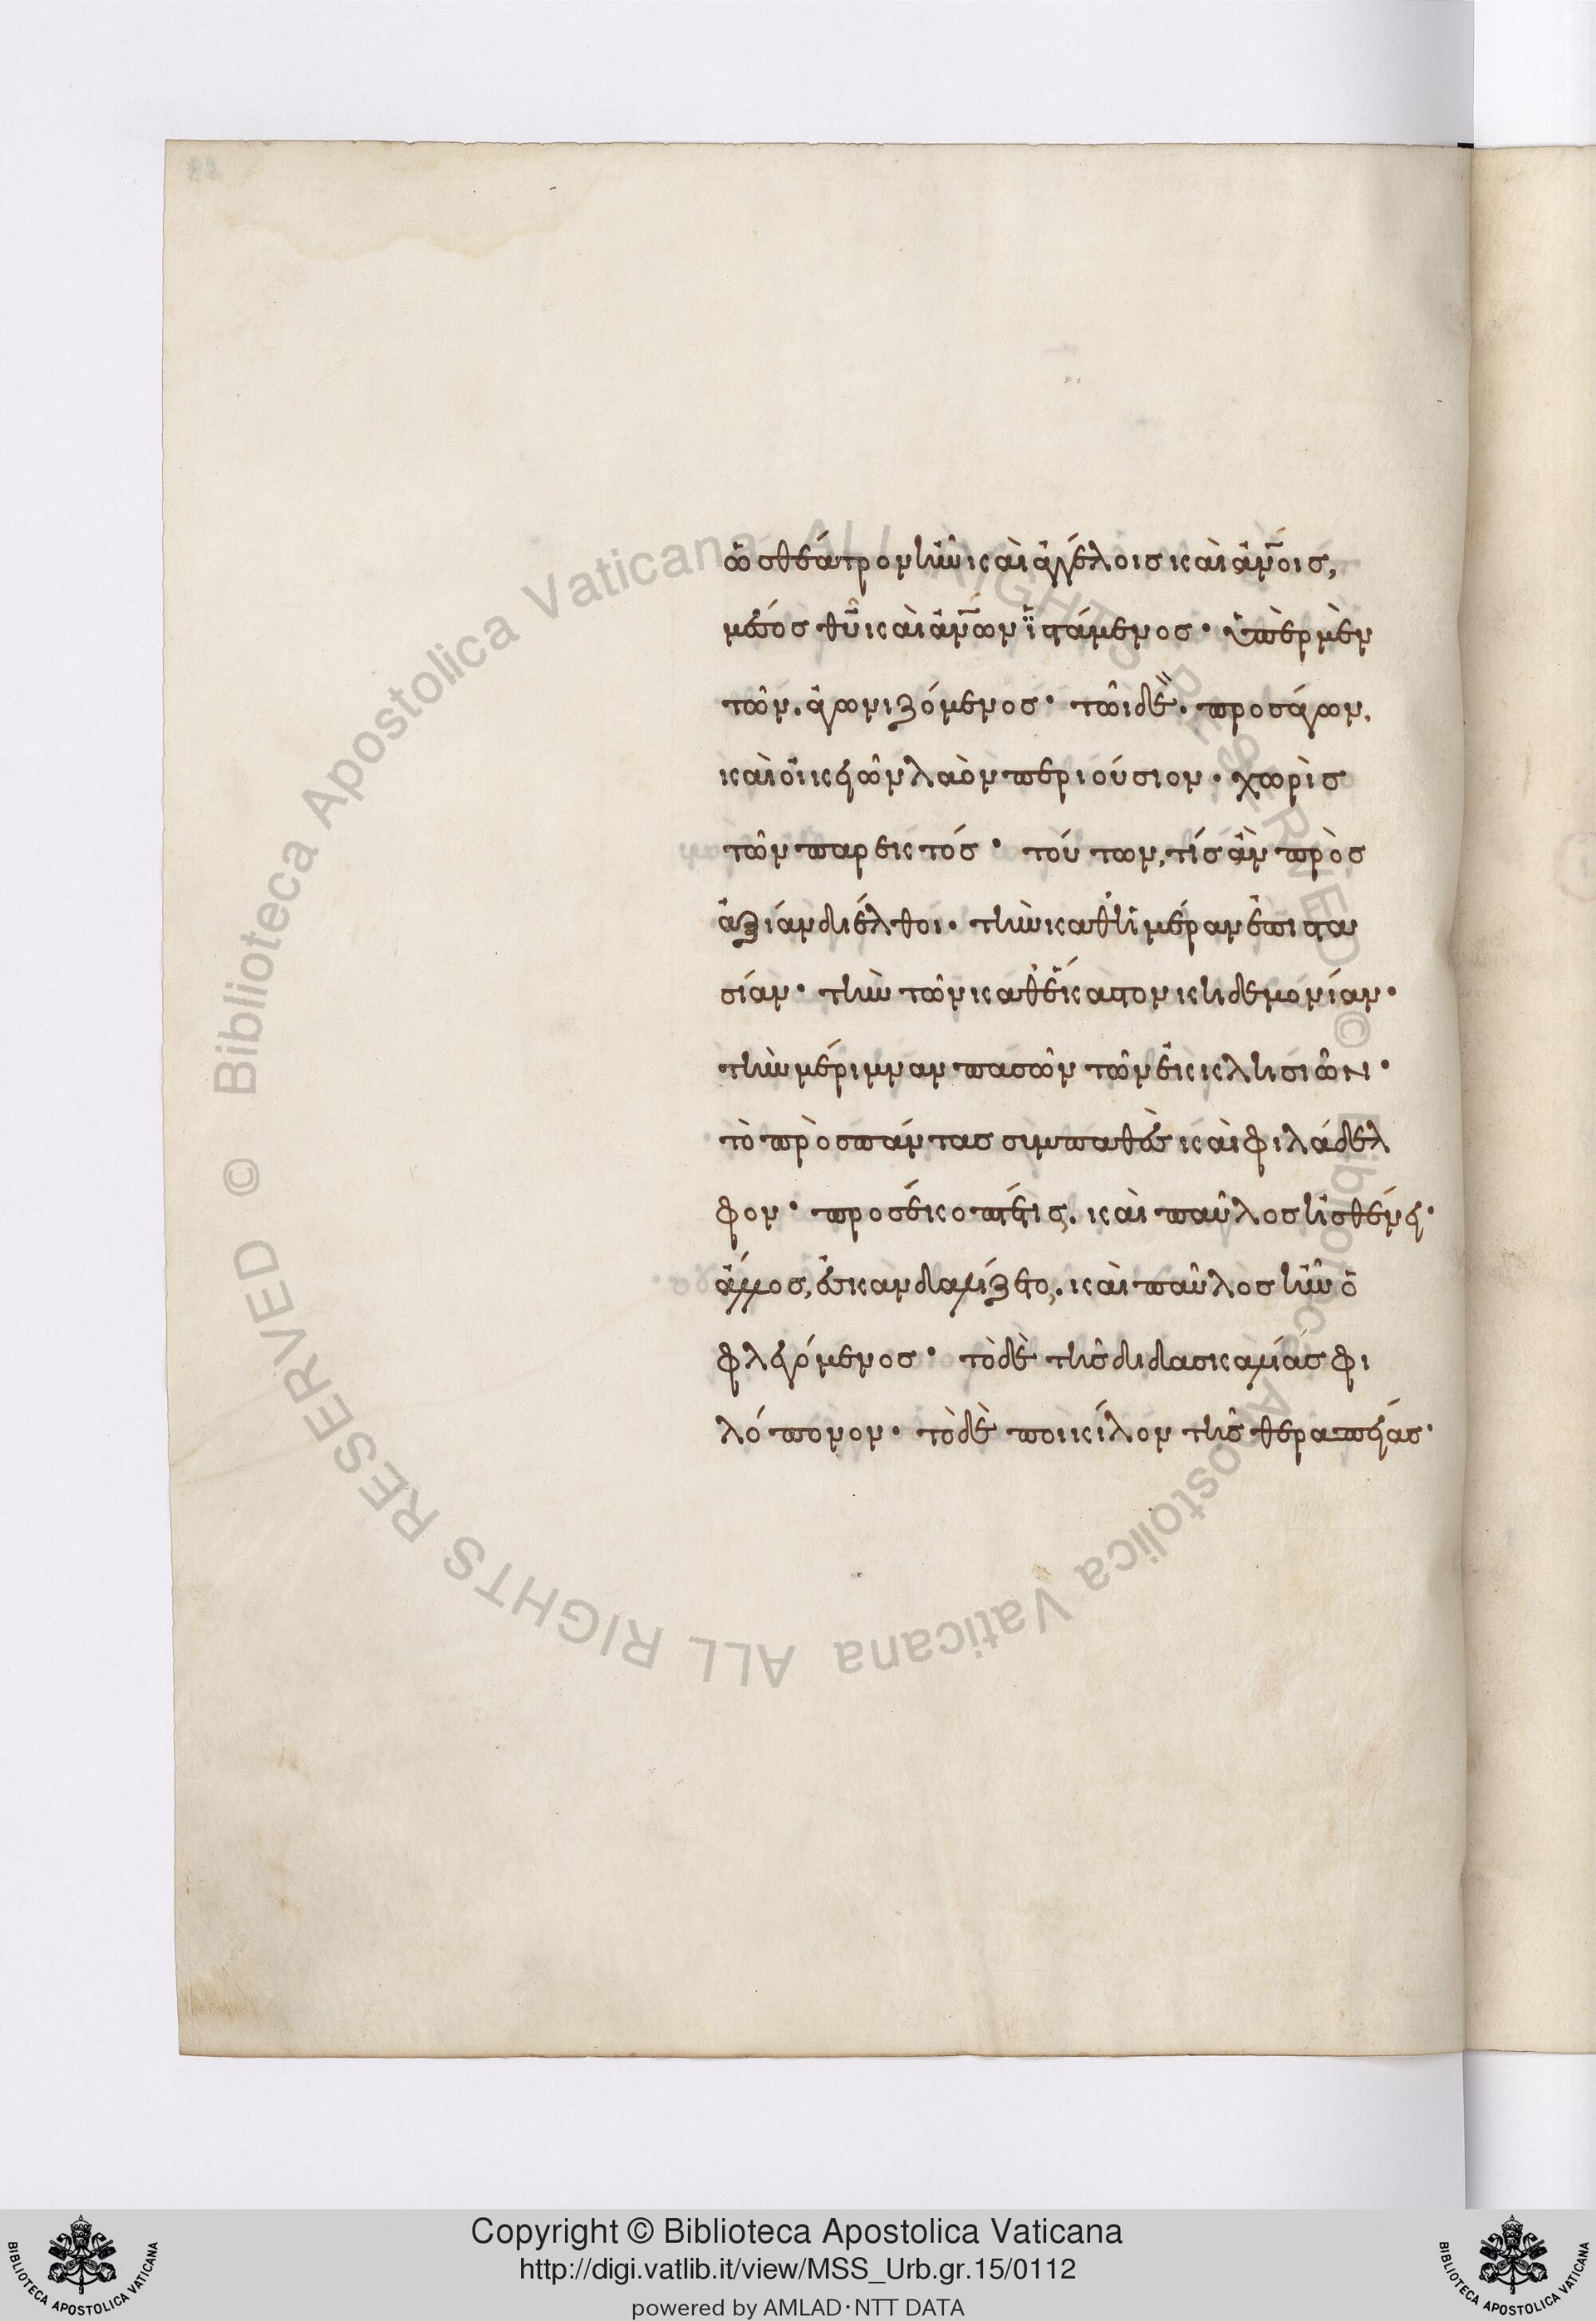 ὡς θέατρον ἦν καὶ ἀγγέλοις καὶ ἀν̅οις,
μέσος θ̅υ καὶ ἀν̅ων ϊστάμενος· ὑπὲρ μὲν
τῶν. ἀγωνιζόμενος· τῶι δὲ. προσάγων.
καὶ οἰκειῶν λαὸν περιούσιον· χωρὶς
τῶν παρεκτός· τούτων, τίς ἂν πρὸς
ἀξίαν διέλθοι· τὴν καθημέραν ἐπιστα
σίαν· τὴν τῶν καθέκαστον κηδεμονίαν·
τὴν μέριμναν πασῶν τῶν ἐκκλησιῶν·
τὸ πρὸς πάντας συμπαθὲς καὶ φιλάδελ
φον· προσέκοπτέ τις. καὶ παῦλος ἠσθένει·
ἄλλος, ἐσκανδαλίζετο. καὶ παῦλος ἦν ὁ
φλεγόμενος· τὸ δὲ τῆς διδασκαλίας φι
λόπονον· τὸ δὲ ποικίλον τῆς θεραπείας·
Copyright © Biblioteca Apostolica Vaticana
http://digi.vatlib.it/view/MSS_Urb.gr.15/0112
powered by AMLAD·NTT DATA
BIBLIOTECA APOSTOLICA VATICANA
BIBLIOTECA APOSTOLICA VATICANA
© Biblioteca Apostolica Vaticana ALL RIGHTS RESERVED © Biblioteca Apostolica Vaticana ALL RIGHTS RESERVED